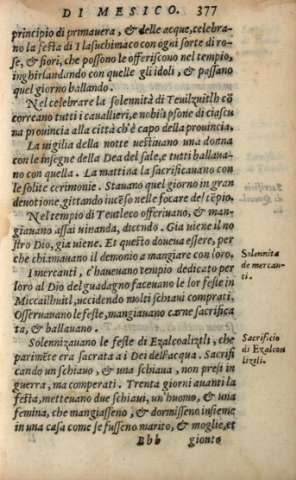 DI MESICO. 377
principio di primauera, & delle acque, celebra-
no la festa di Tlasuchimaco con ogni sorte di ro-
se, & fiori, che possono le offeriscono nel tempio,
inghirlandando con quelle gli idoli, & passano
quel giorno ballando.
Nel celebrare la solennità di Teuilzuitlh cō
correano tutti i cauallieri, e nobili psone di ciascu
na prouincia alla città ch'è capo della prouincia.
La uigilia della notte uestiuano una donna
con le insegne della Dea del sale, e tutti ballaua-
no con quella. La mattina la sacrificauano con
le solite cerimonie. Stauano quel giorno in gran
deuotione, gittando incēso nelle focare del tēpio.
Nel tempio di Teutleco offeriuano, & man-
giauano assai uiuanda, dicendo. Gia uiene il no
stro Dio, gia uiene. Et questo doueua essere, per
che chiamauano il demonio a mangiare con loro.
Solennita
de mercan-
ti.
I mercanti, c'haueuano tempio dedicato per
loro al Dio del guadagno faceuano le lor feste in
Miccailhuitl, uccidendo molti schiaui comprati.
Osseruauano le feste, mangiauano carne sacrifica
ta, & ballauano.
Sacrificio
di Ezalcoa
liztli.
Solennizauano le feste di Ezalcoaliztli, che
parimēte era sacrata a i Dei dell'acqua. Sacrifi
cando un schiauo, & una schiaua, non presi in
guerra, ma comperati. Trenta giorni auanti la
festa, metteuano due schiaui, un'huomo, & una
femina, che mangiasseno, & dormisseno insieme
in una casa come se fusseno marito, & moglie, et
Bbb gionto